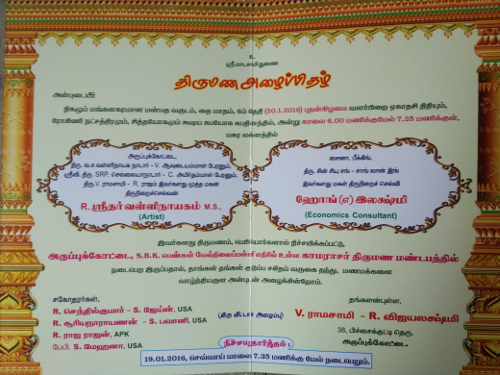 உ
ஸ்ரீ மாடசாமி துணை
திருமண அழைப்பிதழ்
அன்புடையீர்
நிகழும் மங்களகரமான மன்மத வருடம், தை மாதம், 6ம் தேதி (20.1.2016) புதன்கிழமை வளர்பிறை ஏகாதசி திதியும்,
ரோகிணி நட்சத்திரமும், சித்தயோகமும் கூடிய சுபயோக சுபதினத்தில், அன்று காலை 6.00 மணிக்குமேல் 7.25 மணிக்குள்,
மகர லக்னத்தில்
அருப்புக்கோட்டை,
திரு. வ.ச.வள்ளிநாயக நாடார் - V. ஆவுடையம்மாள் பேரனும்,
ஸ்ரீவி. திரு. SRP. செல்லையாநாடார் - C. அமிர்தம்மாள் பேரனும்,
திரு.V. ராமசாமி - R. ராஜம் இவர்களது மூத்த மகன்
திருநிறைச்செல்வன்
R. ஸ்ரீதர் வள்ளிநாயகம் M.S.,
(Artist)
சைனா, பீக்கிங்,
திரு. சின் சீயு சாங் - சாங் லான் இங்
இவர்களது மகள் திருநிறைச் செல்வி
ஹோங் (எ) இலக்ஷ்மி
(Economics Consultant)
இவர்களது திருமணம், பெரியோர்களால் நிச்சயிக்கப்பட்டு,
அருப்புக்கோட்டை, S.B.K. பெண்கள் மேல்நிலைப்பள்ளி எதிரில் உள்ள காமராசர் திருமண மண்டபத்தில்
நடைபெற இருப்பதால், தாங்கள் தங்கள் குடும்ப சகிதம் வருகை தந்து, மணமக்களை
வாழ்த்தியருள அன்புடன் அழைக்கின்றோம்.
சகோதரர்கள்,
R. செந்தில்குமார் - S. ஜேய்ன், USA
R. சூரியநாராயணன் - S. பவானி, USA
R. ராஜ ராஜன், APK
பேபி. S. மேஹனா, USA
(இரு வீட்டார் அழைப்பு)
தங்களன்புள்ள,
V. ராமசாமி - R. விஜயலக்ஷ்மி
38, பிச்சைக்குட்டி தெரு,
அருப்புக்கோட்டை.
நிச்சயதார்த்தம் :
19.01.2016, செவ்வாய் மாலை 7.35 மணிக்கு மேல் நடைபெறும்.